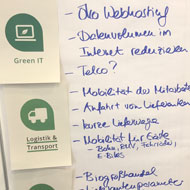 - Öko Webhosting
- Datenvolumen im
Internet reduzieren
- Telco?
Green IT
- Mobilität der Mitarbeit
- Anfahrt von Lieferanten
- kurze Lieferwege
- Mobilität für Gäste
Logistik &
Transport
- Bahn, BUV, Fahrräder,
E-Bikes